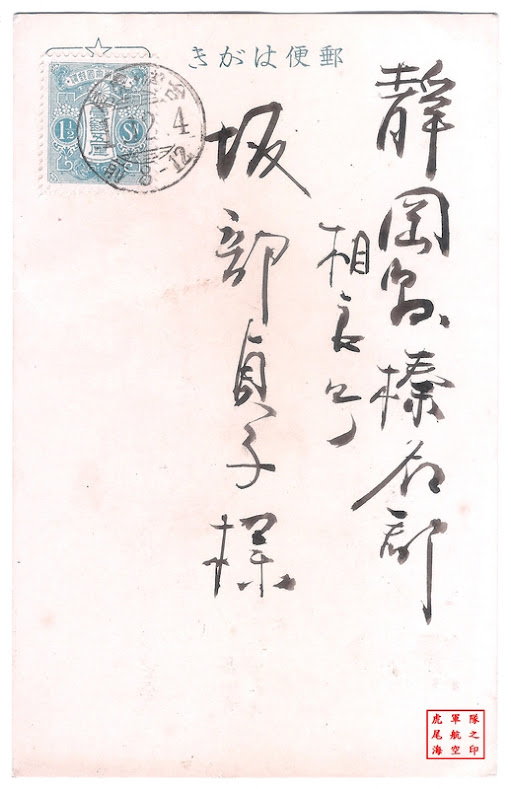 郵便はがき
1½ Sn
2.4
静岡県榛名郡
相良町
坂部貞子様
虎尾海
軍航空
隊之印